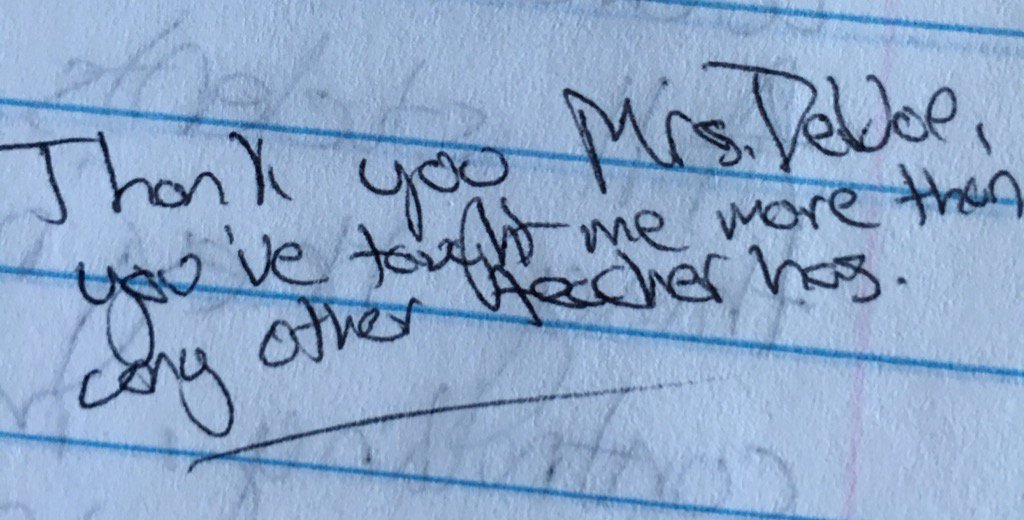 Thank you Mrs. DeVoe,
you've taught me more than
any other teacher has.